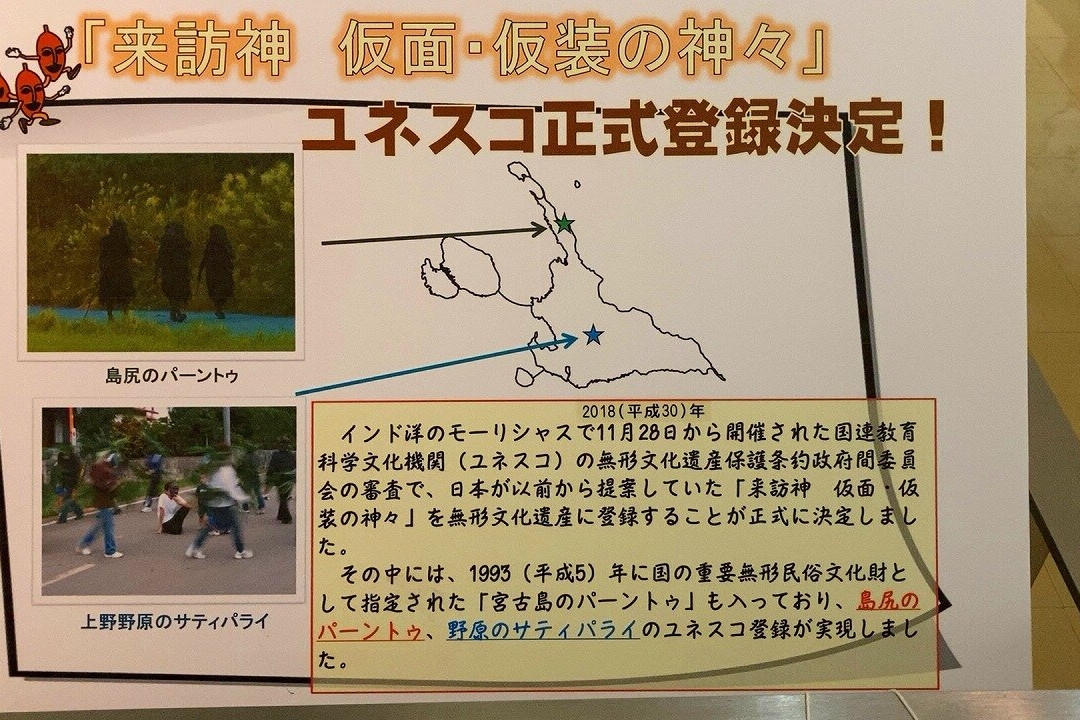 「来訪神　仮面・仮装の神々」
ユネスコ正式登録決定！
島尻のパーントゥ
上野野原のサティパライ
2018(平成30)年
インド洋のモーリシャスで11月28日から開催された国連教育
科学文化機関（ユネスコ）の無形文化遺産保護条約政府間委員
会の審査で、日本が以前から提案していた「来訪神　仮面・仮
装の神々」を無形文化遺産に登録することが正式に決定しまし
た。
その中には、1993（平成5）年に国の重要無形民俗文化財と
して指定された「宮古島のパーントゥ」も入っており、島尻の
パーントゥ、野原のサティパライのユネスコ登録が実現しまし
た。